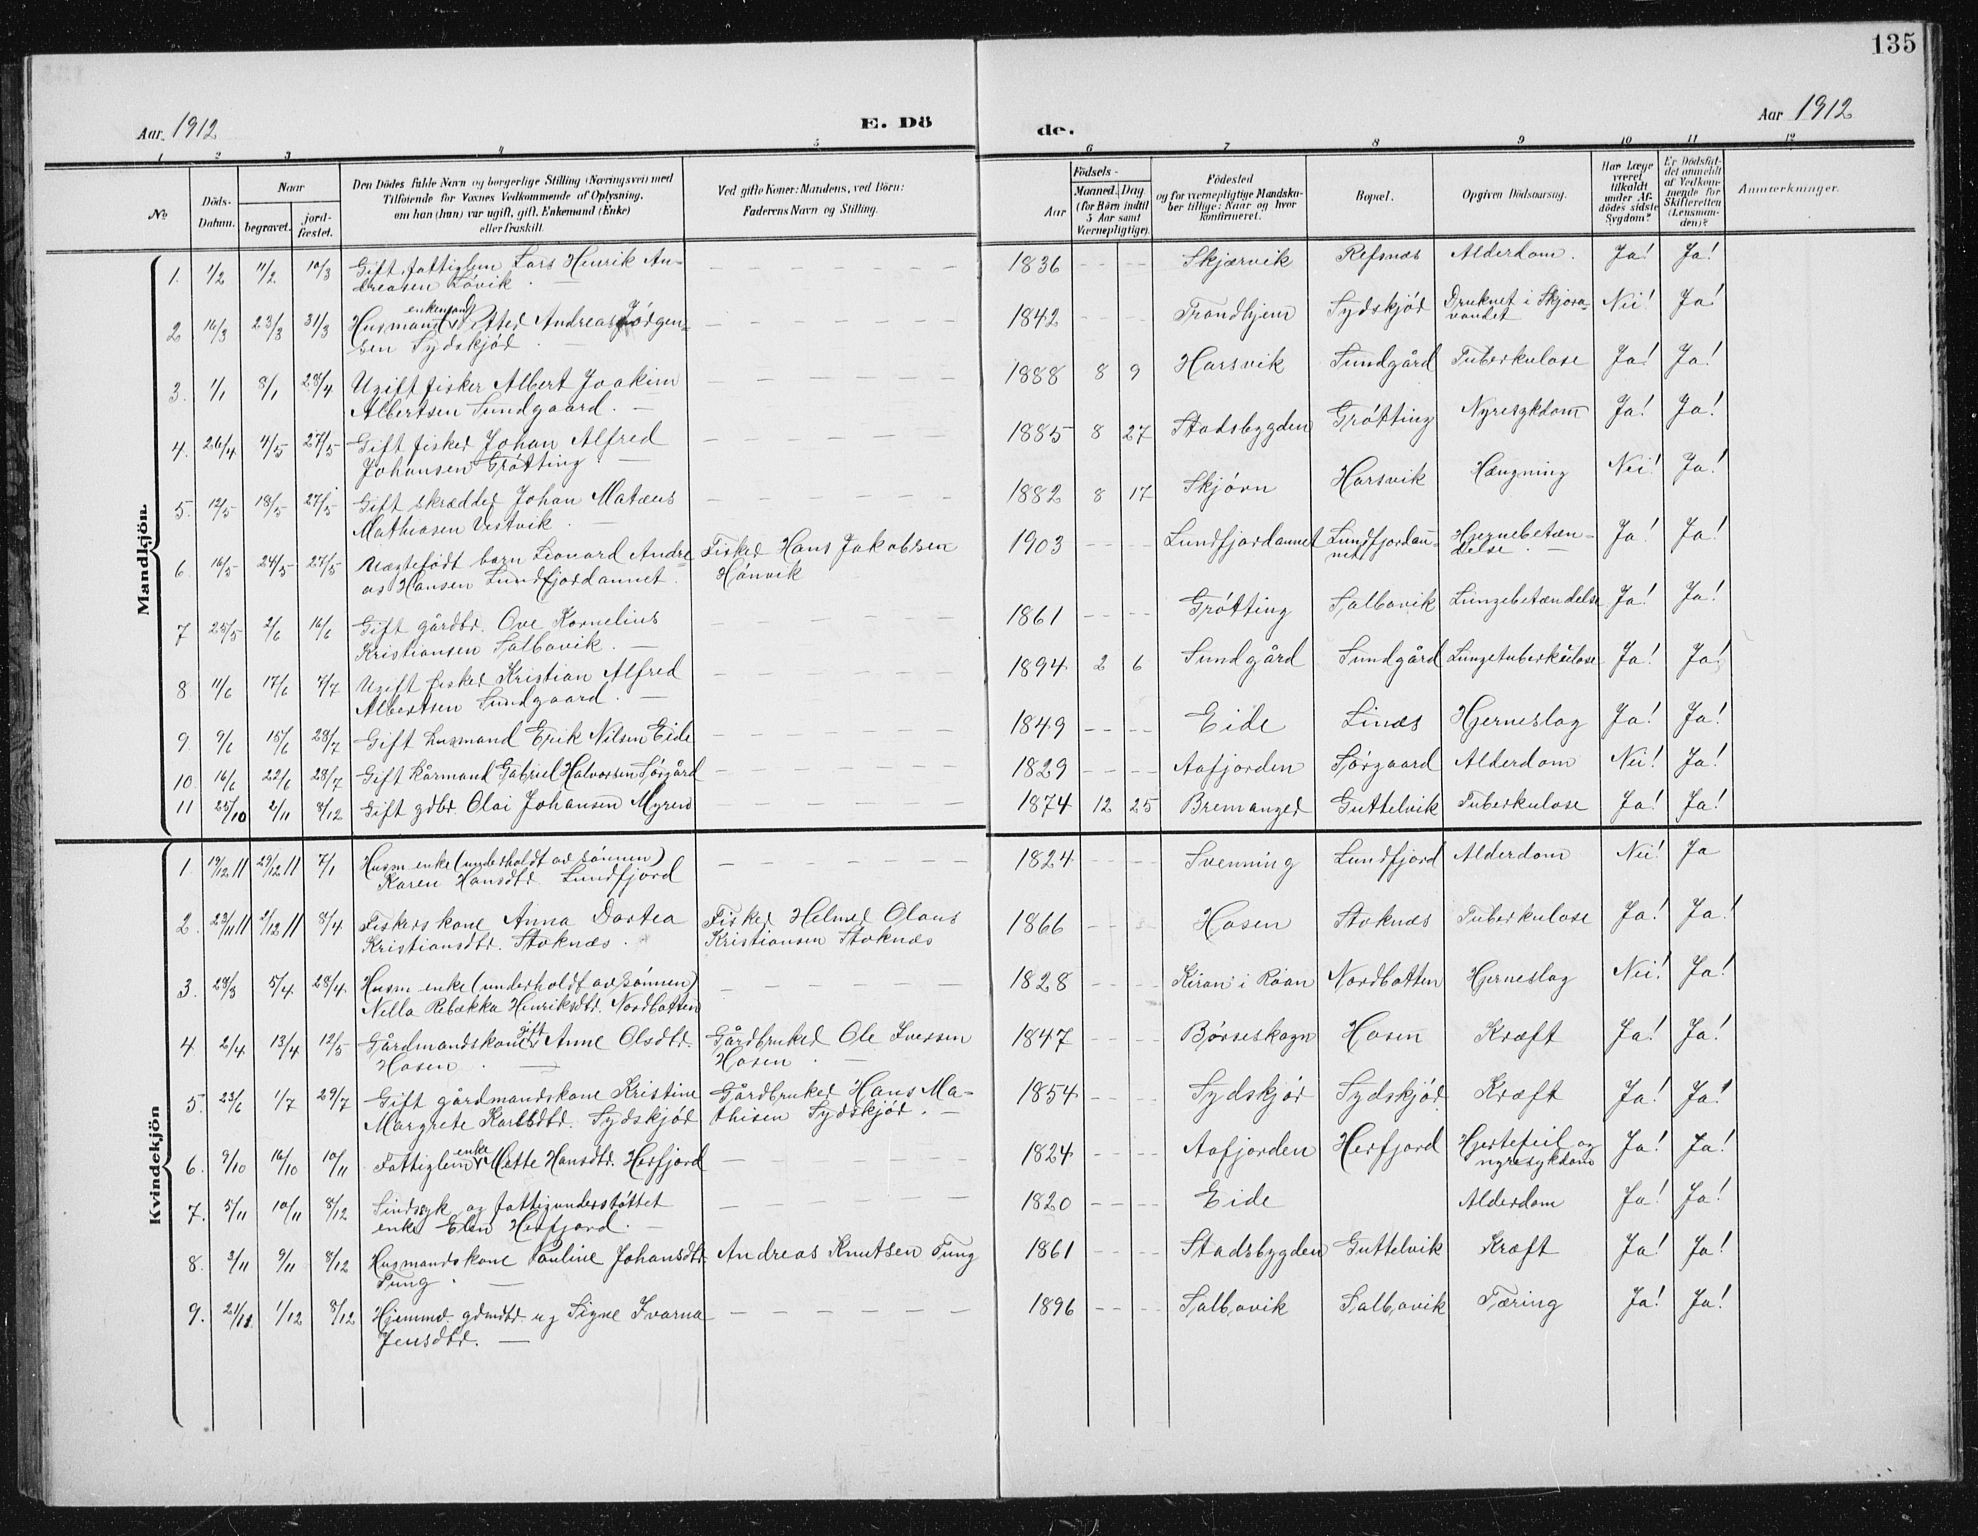 135
Aar 1912
E. Dö
de.
Aar 1912
1 2 3 4 5 6 7 8 9 10 11 12
No
Döds-
Datum.
Naar
begravet.
jord-
fæstet.
Den Dödes fulde Navn og borgerlige Stilling (Næringsvei) med
Tilföiende for Voxnes Vedkommende af Oplysning,
om han (hun) var ugift, gift, Enkemand (Enke)
eller fraskilt.
Ved gifte Koner: Mandens, ved Börn:
Faderens Navn og Stilling.
Födsels-
Aar
Maaned. Dag.
(for Börn indtil
5 Aar samt
Værnepligtige).
Födested
og for værnepligtige Mandska-
ber tillige: Naar og hvor
konfirmeret.
Bopæl.
Opgiven Dödsaarsag.
Har Læge
været
tilkaldt
under Af-
dödes sidste
Sygdom?
Er Dödsfal-
det anmeldt
af Vedkom-
mende for
Skifteretten
(Lensman-
den)?
Anmærkninger.
Mandkjön.
1. 1/2 11/2 10/3 Gift fattiglem Lars Henrik An-
dreasen Røvik. — 1836 Skjærvik Refsnæs Alderdom. Ja! Ja!
2 16/3 23/3 31/3 Husmand enkemand Petter Andreas Jørgen-
sen Sydskjør. — 1842 Trondhjem Sydskjør Druknet i Skjøra-
vandet Nei! Ja!
3. 1/1 8/1 28/4 Ugift fisker Albert Joakim
Albertsen Sundgaard. — 1888 8 9 Harsvik Sundgård Tuberkulose Ja! Ja!
4. 26/4 4/5 27/5 Gift fisker Johan Alfred
Johansen Grøtting. — 1885 8 27 Stadsbygden Grøtting Nyresykdom Ja! Ja!
5. 12/5 18/5 27/5 Gift skrædder Johan Matæus
Mathiasen Vestvik. — 1882 8 17 Skjørn Harsvik Hængning Nei! Ja!
6. 16/5 24/5 27/5 Uægtefødt barn Leonard Andre-
as Hansen Lundfjordannet. Fisker Hans Jakobsen
Hønvik 1903 Lundfjordannet Lundfjordan-
net Hjernebetæn-
delse. — Ja! Ja!
7 25/5 2/6 16/6 Gift gårdbr. Ove Kornelius
Kristiansen Salbovik. — 1861 Grøtting Salbovik Lungebetændelse Ja! Ja!
8 11/6 17/6 7/7 Ugift fisker Kristian Alfred
Albertsen Sundgaard. — 1894 2 6 Sundgård Sundgård Lungetuberkulose Ja! Ja!
9 9/6 15/6 28/7 Gift husmand Erik Nilsen Eide 1849 Eide Linæs Hjerneslag Ja! Ja!
10. 16/6 22/6 28/7 Gift kårmand Gabriel Halvorsen Sørgård 1829 Aafjorden Sørgaard Alderdom Nei! Ja!
11 25/10 2/11 8/12 Gift gdbr. Olai Johansen Myren 1874 12 25 Bremanger Guttelvik Tuberkulose Ja! Ja!
Kvindekjön
1 19/12 11 29/12 11 7/1 Husm. enke (underholdt av sønnen)
Karen Hansdtr. Lundfjord 1824 Svenning Lundfjord Alderdom Nei! Ja
2. 23/11 11 2/12 11 8/4 Fiskerskone Anna Dortea
Kristiansdtr. Stoknæs. Fisker Helmer Olaus
Kristiansen Stoknæs 1866 Hosen Stoknæs Tuberkulose Ja! Ja!
3. 28/3 5/4 28/4. Husm. enke (underholdt av sønnen)
Nella Rebækka Henriksdtr. Nordbotten 1828 Kiran i Roan Nordbotten Hjerneslag Nei! Ja!
4 2/4 13/4 12/5 Gårdmandskone gift Anne Olsdtr.
Hosen. — Gårdbruker Ole Iversen
Hosen. — 1847 Børseskogn Hosen Kræft Ja! Ja!
5. 23/6 1/7 29/7 Gift gårdmandskone Kristine
Margrete Karlsdtr. Sydskjør Gårdbruker Hans Ma-
thisen Sydskjør. — 1854 Sydskjør Sydskjør Kræft Ja! Ja!
6. 9/10 16/10 10/11 Fattiglem enke Mette Hansdtr. Herfjord 1824 Aafjorden Herfjord Hjertefeil og
nyresykdom Ja! Ja!
7. 5/11 10/11 8/12 Sindssyk og fattigunderstøttet
enke Elen Herfjord. — 1820 Eide Alderdom Ja! Ja!
8. 3/11 9/11 8/12 Husmandskone Pauline Johansdtr.
Tung. — Andreas Knutsen Tung 1861 Stadsbygden Guttelvik Kræft Ja! Ja!
9. 21/11 1/12 8/12 Hjemmev. gdmdtr. ug Signe Ivarna
Jensdtr. — 1896 Salbovik Salbovik Tæring Ja! Ja!